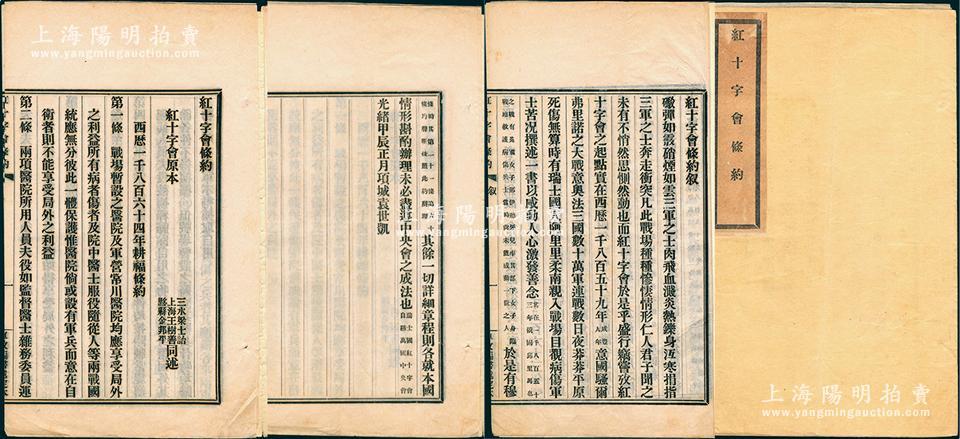 紅十字會條約
紅十字會條約敘
礮彈如霰硝煙如雲三軍之士肉飛血濺炎熱鑠身沍寒捐指
三軍之士奔走衝突凡此戰場種種慘悽情形仁人君子聞之
未有不愴然思惻然動也而紅十字會於是乎盛行竊嘗攷紅
十字會之起點實在西歷一千八百五十九年
意國騷爾
弗里諾之大戰意奧法三國數十萬軍連戰數日夜莽平原
死傷無算時有瑞士國
里里柔南親入戰場目覩病傷軍
士苦況撰述一書以感動人心激發善念
於是有穆
紅十字會條約 敘
其餘一切詳細章程則各就本國
情形斟酌辦理未必盡遵中央會之成法也
光緒甲辰正月項城袁世凱
紅十字會條約
紅十字會原本
三水梁士詒
上海王樹善
黟縣金邦平
同述
西歷一千八百六十四年耕福條約
第一條 戰場暫設之醫院及軍營常川醫院均應享受局外
之利益所有病者傷者及院中醫士服役隨從人等兩戰國
統應無分彼此一體保護惟醫院倘或設有軍兵而意在自
衛者則不能享受局外之利益
第二條 兩項醫院所用人員夫役如監督醫士雜務委員運
紅十字會條約
上海陽明拍賣
www.yangmingauction.com
上海陽明拍賣
www.yangmingauction.com
上海陽明拍賣
www.yangmingauction.com
上海陽明拍賣
www.yangmingauction.com